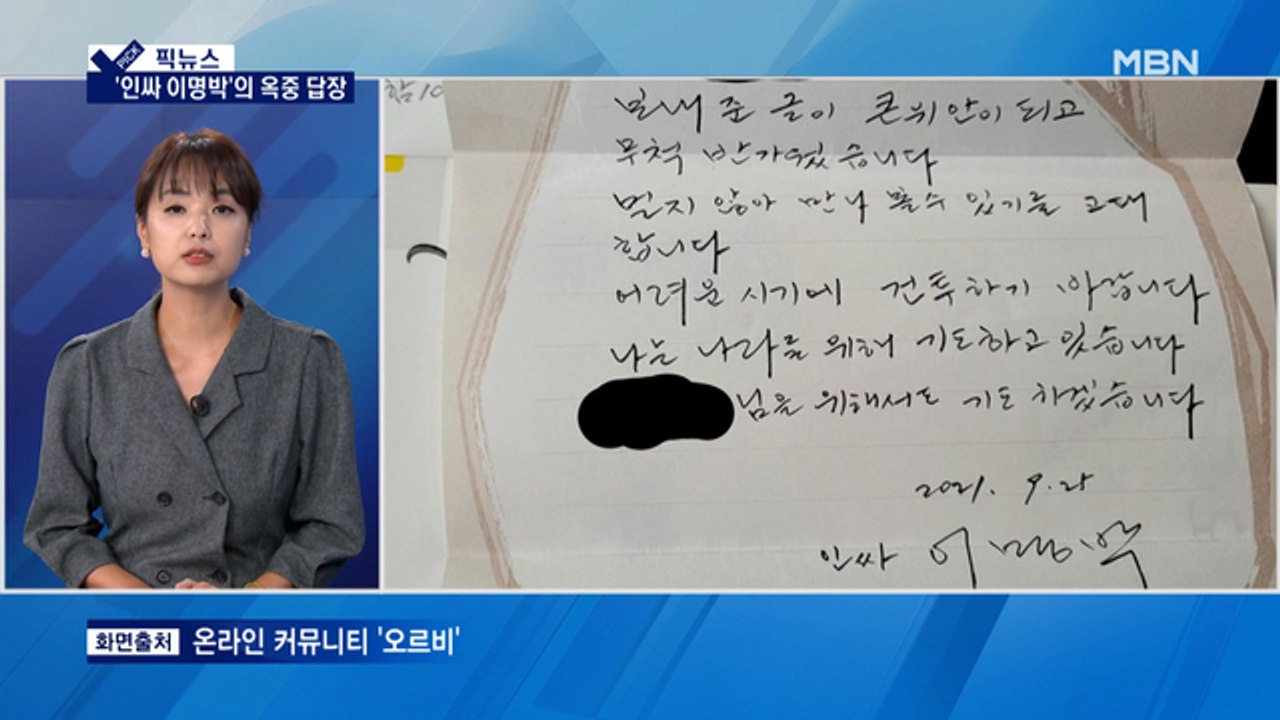 PICK 픽뉴스
'인싸 이명박'의 옥중 답장
MBN
보내 준 글이 큰 위안이 되고
무척 반가웠습니다
멀지 않아 만나 뵐 수 있기를 고대
합니다
어려운 시기에 건투하기 바랍니다
나는 나라를 위해 기도하고 있습니다
님을 위해서도 기도 하겠습니다
2021. 9. 25
인싸 이명박
화면출처 온라인 커뮤니티 '오르비'